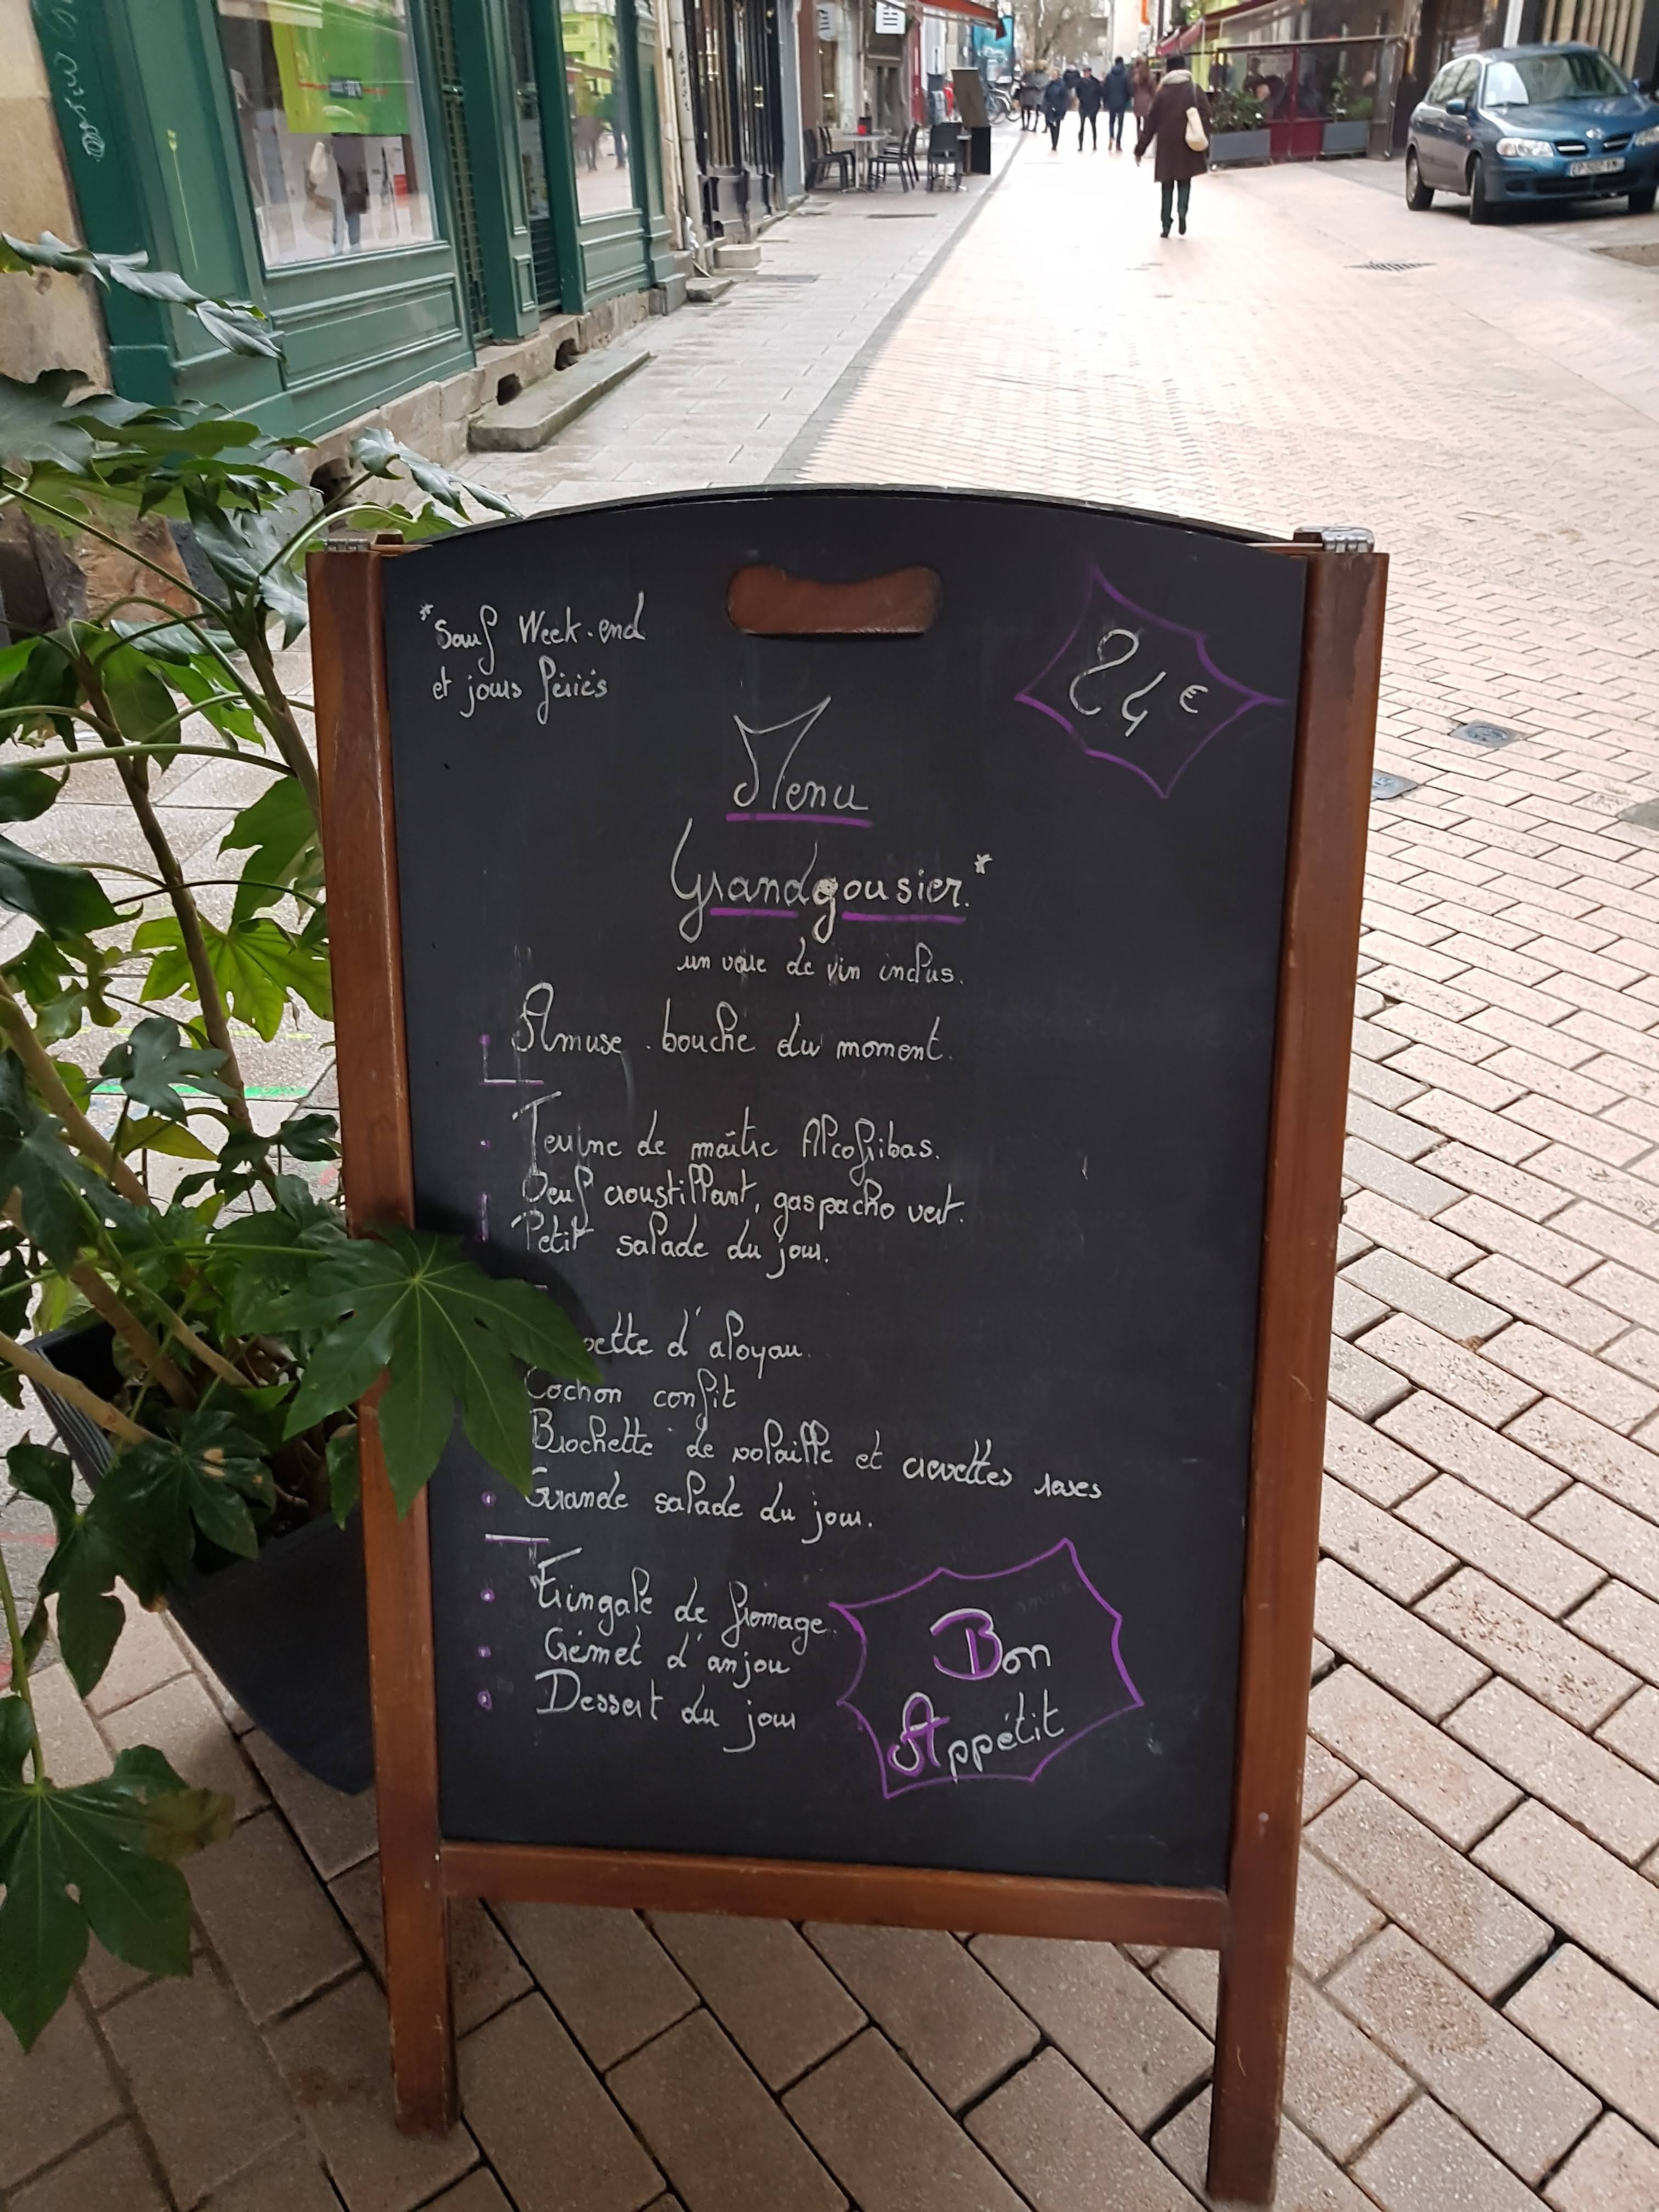 *Sauf Week-end
et jours fériés
24€
Menu
Grandgousier.*
un verre de vin inclus.
Amuse-bouche du moment.
Terrine de maître Alcofribas.
Oeuf croustillant, gaspacho vert.
Petit salade du jour.
d'aloyau.
Cochon confit
Brochette de volaille et crevettes
Grande salade du jour.
Fringale de fromage.
Crémet d'anjou
Dessert du jour
Bon
Appétit